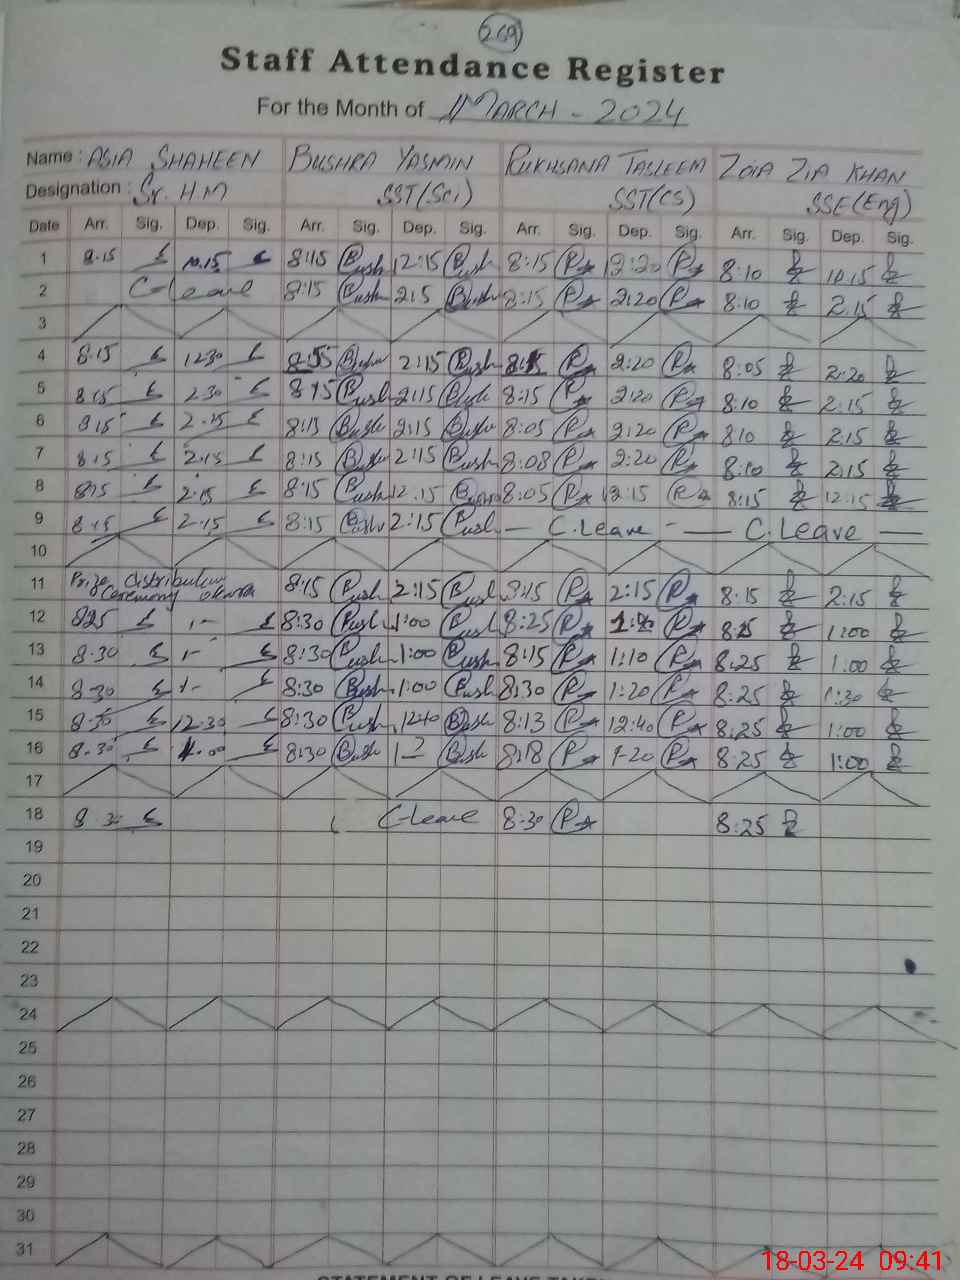 269
Staff Attendance Register
For the Month of MARCH - 2024
Name : ASIA SHAHEEN BUSHRA YASMIN RUKHSANA TASLEEM ZOIA ZIA KHAN
Designation : Sr. H.M SST(Sci) SST(CS) SSE(Eng)
Date Arr. Sig. Dep. Sig. Arr. Sig. Dep. Sig. Arr. Sig. Dep. Sig. Arr. Sig. Dep. Sig.
1 8.15 10.15 8:15 Bush 12:15 Bush 8:15 R 12:20 R 8:10 10.15
2 C-leave 8:15 Bush 2:5 Bush 8:15 R 2:20 R 8:10 2.15
3
4 8.15 1230 Bush 2:15 Bush R 2:20 R 8:05 2:20
5 8:15 2.30 8:15 Bush 2:15 Bush 8:15 R 2:20 R 8:10 2:15
6 8:15 2.15 8:15 Bush 2:15 Bush 8:05 R 2:20 R 8:10 2:15
7 8.15 2.15 8:15 Bush 2:15 Bush 8:08 R 2:20 R 8:10 2:15
8 8:15 2.15 8:15 Bush 12:15 Bush 8:05 R 12:15 R 8:15 12:15
9 8.15 2.15 8:15 Bush 2:15 Bush — C.Leave - — C.Leave —
10
11 Prize distribution 8:15 Bush 2:15 Bush 8:15 R 2:15 R 8:15 2:15
Ceremony
12 825 1- 8:30 Bush 1:00 Bush 8:25 R R 8:25 1:00
13 8.30 1- 8:30 Bush 1:00 Bush 8:15 R 1:10 R 8.25 1:00
14 8.30 1- 8:30 Bush 1:00 Bush 8:30 R 1:20 R 8:25 1:30
15 8:30 12.30 8:30 Bush 1240 Bush 8:13 R 12:40 R 8.25 1:00
16 8.30 1.00 8:30 Bush Bush 8:18 R 1-20 R 8.25 1:00
17
18 8.30 C-leave 8:30 R 8:25
19
20
21
22
23
24
25
26
27
28
29
30
31
18-03-24 09:41
STATEMENT OF LEAVE TAKEN